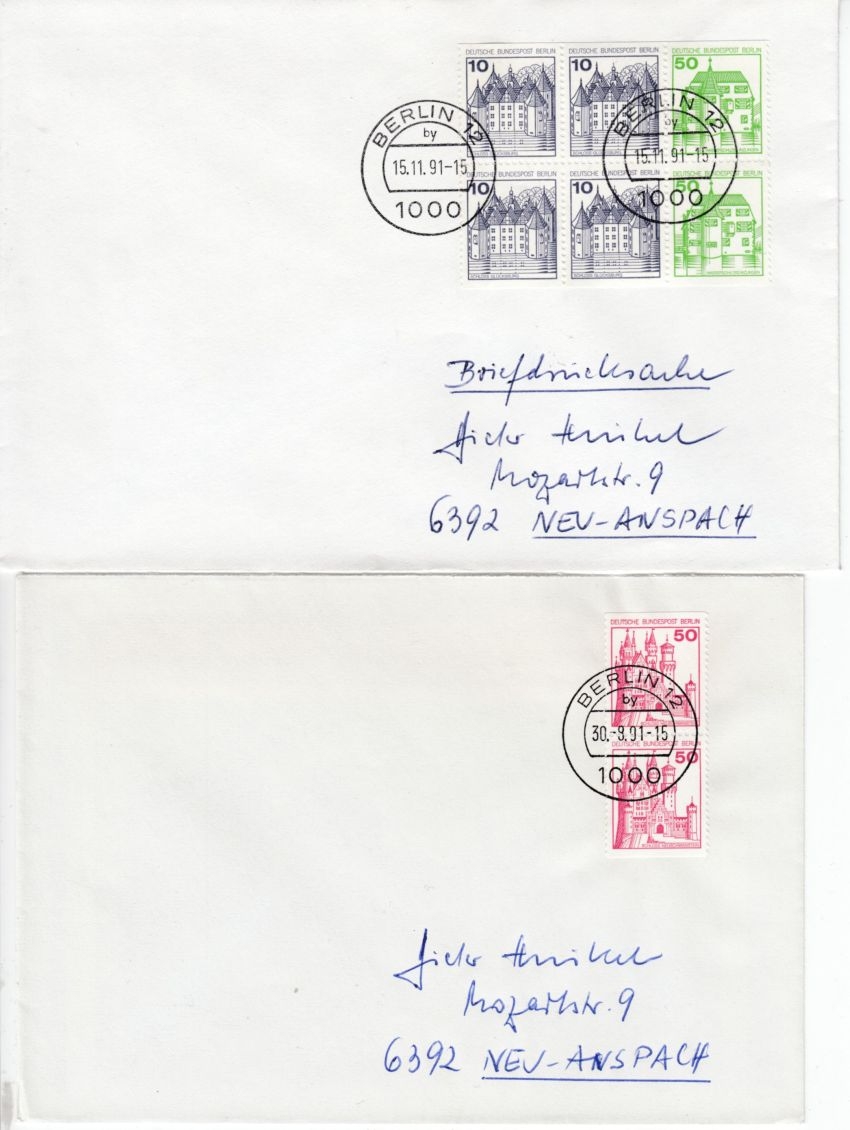 DEUTSCHE BUNDESPOST BERLIN DEUTSCHE BUNDESPOST BERLIN DEUTSCHE BUNDESPOST BERLIN
10 10 50
BERLIN 12 BERLIN 12
by by
15.11.91-15 15.11.91-15
1000 1000
DEUTSCHE BUNDESPOST BERLIN DEUTSCHE BUNDESPOST BERLIN DEUTSCHE BUNDESPOST BERLIN
10 10 50
SCHLOSS GLÜCKSBURG SCHLOSS GLÜCKSBURG WASSERSCHLOSS INZLINGEN
Briefdrucksache
Mozartstr. 9
6392 NEU-ANSPACH
DEUTSCHE BUNDESPOST BERLIN
50
BERLIN 12
by
30.-8.91-15
1000
DEUTSCHE BUNDESPOST BERLIN
50
SCHLOSS NEUSCHWANSTEIN
Mozartstr. 9
6392 NEU-ANSPACH